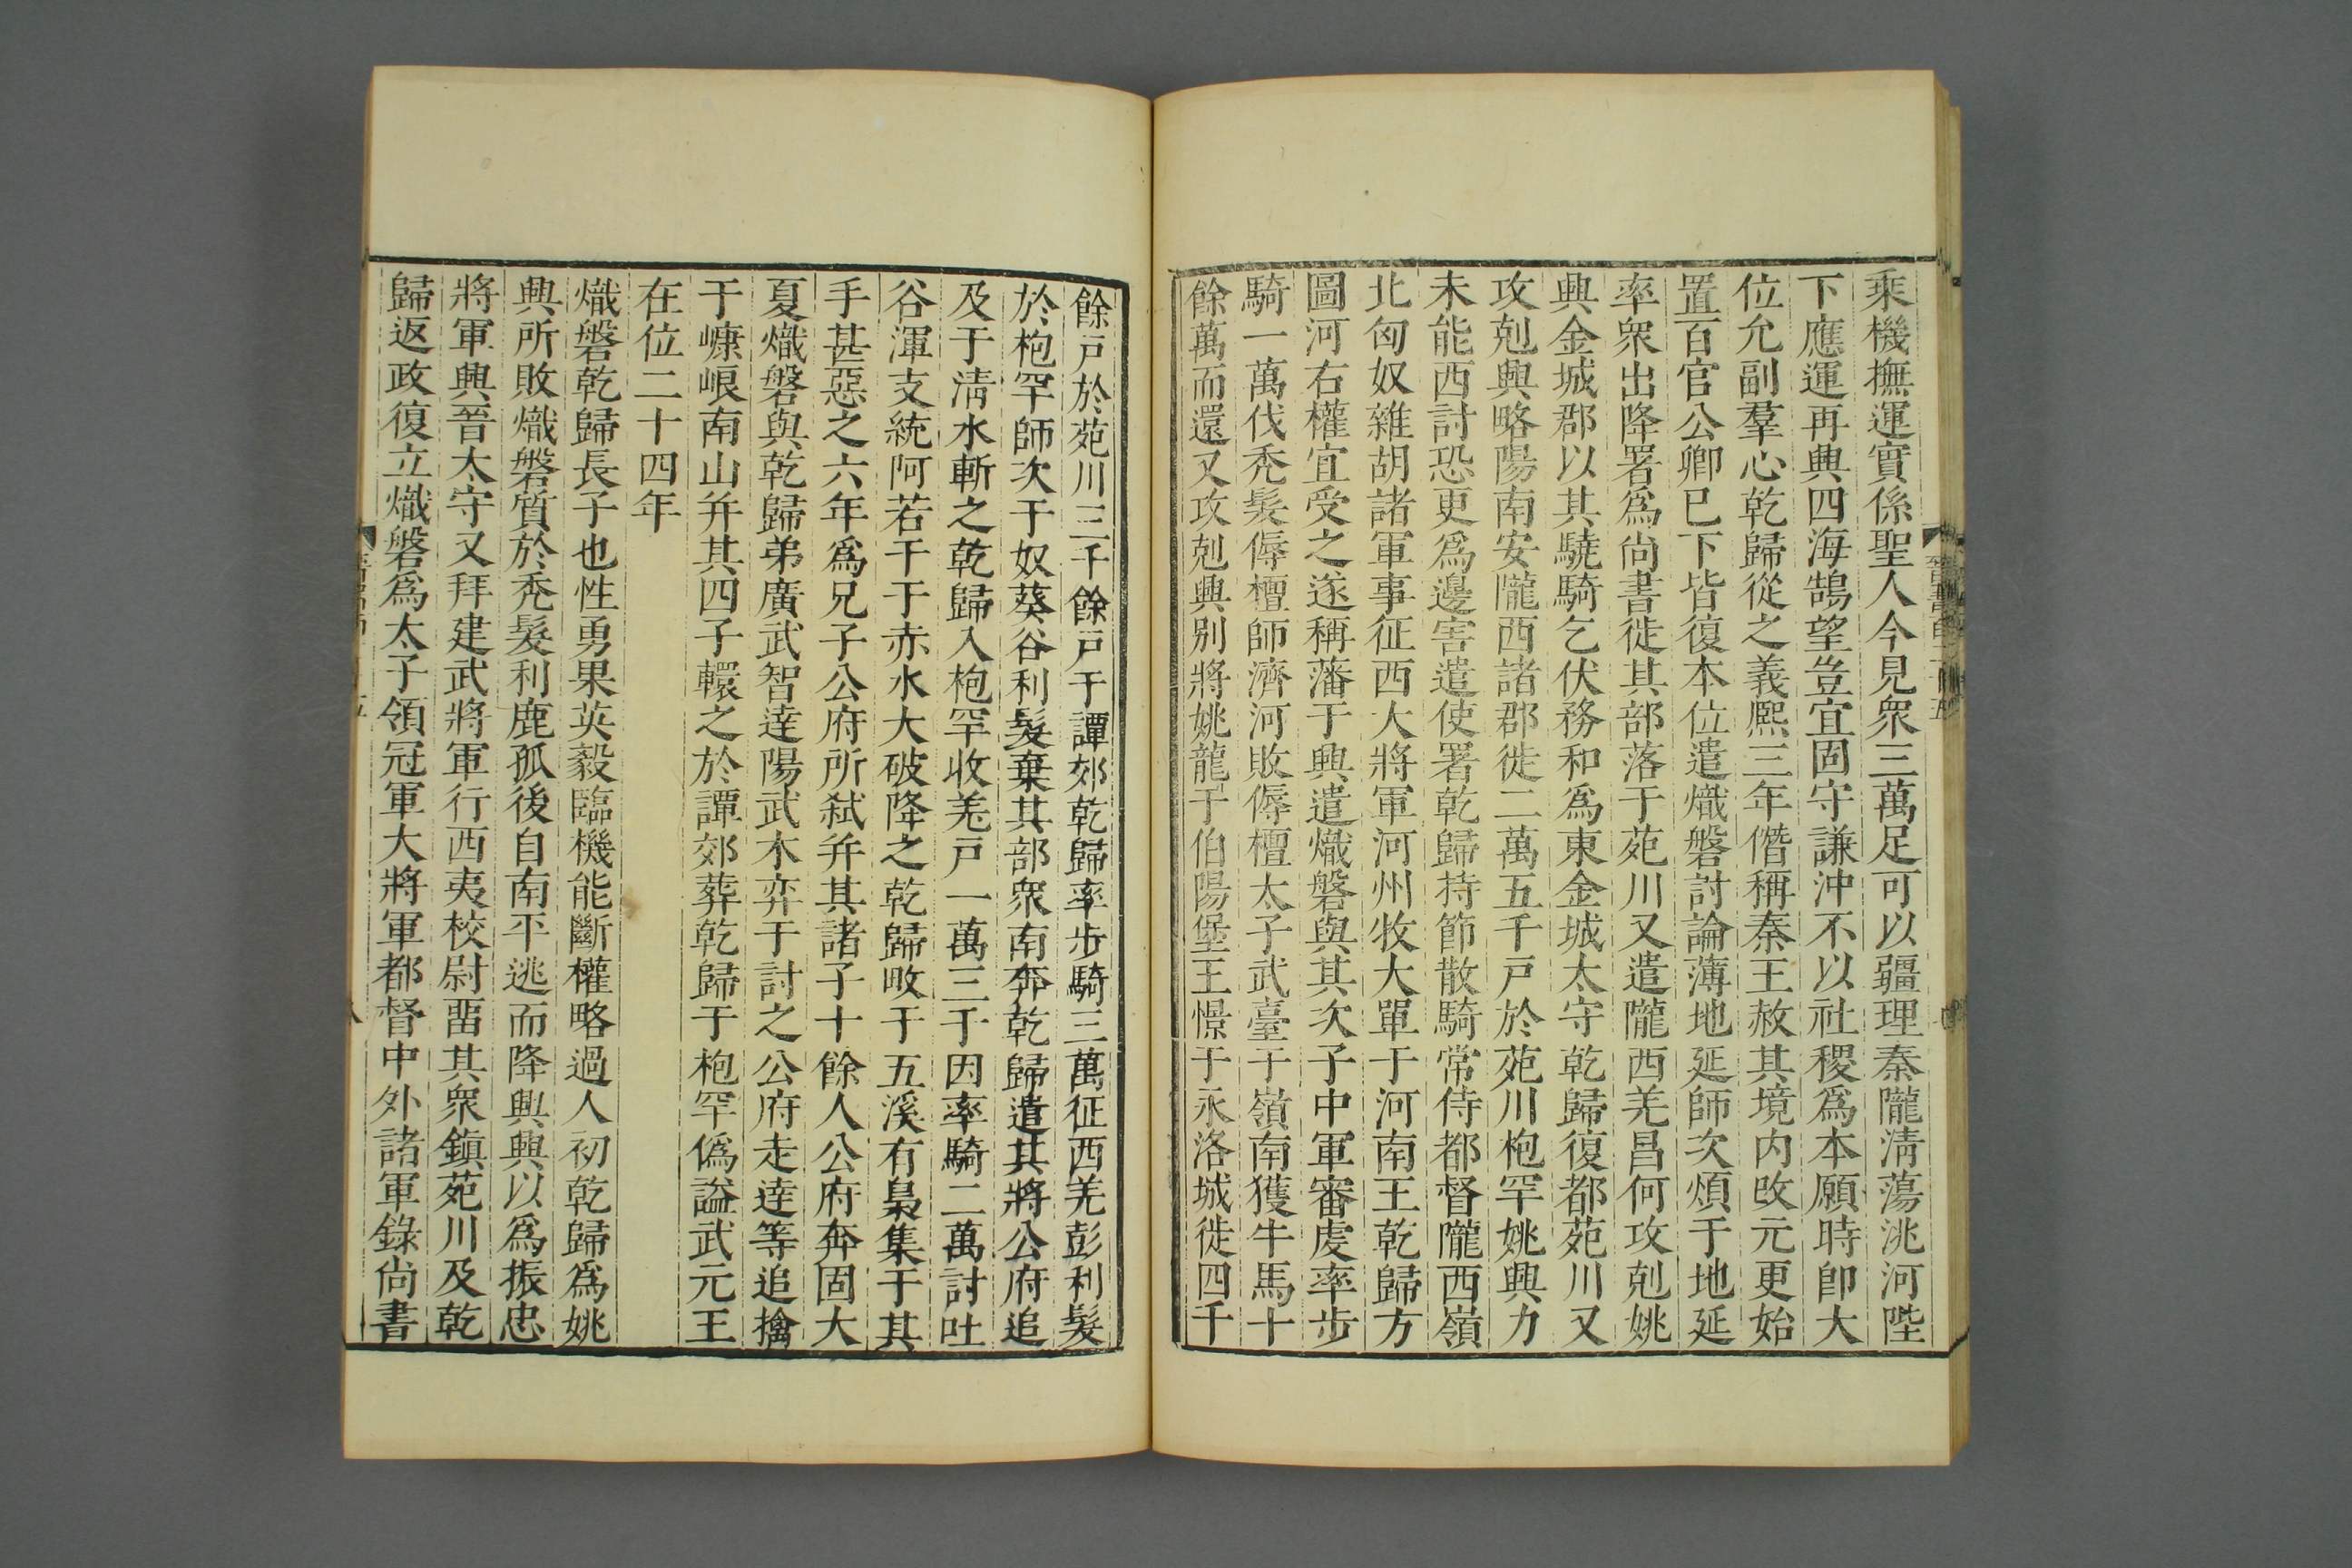 乘機撫運實係聖人今見衆三萬足可以疆理秦隴淸蕩洮河陛
下應運再興四海鵠望豈宜固守謙沖不以社稷爲本願時卽大
位允副羣心乾歸從之義熙三年僭稱秦王赦其境內改元更始
置百官公卿已下皆復本位遣熾磐討論薄地延師次煩于地延
率衆出降署爲尚書徙其部落于苑川又遣隴西羌昌何攻剋姚
興金城郡以其驍騎乞伏務和爲東金城太守乾歸復都苑川又
攻剋興略陽南安隴西諸郡徙二萬五千戸於苑川枹罕姚興力
未能西討恐更爲邊害遣使署乾歸持節散騎常侍都督隴西嶺
北匈奴雜胡諸軍事征西大將軍河州牧大單于河南王乾歸方
圖河右權宜受之遂稱藩于興遣熾磐與其次子中軍審虔率步
騎一萬伐禿髮傉檀師濟河敗傉檀太子武臺于嶺南獲牛馬十
餘萬而還又攻剋興别將姚龍于伯陽堡王憬于永洛城徙四千
晉書一百二十五
餘戸於苑川三千餘戸于譚郊乾歸率步騎三萬征西羌彭利髮
於枹罕師次于奴葵谷利髮棄其部衆南奔乾歸遣其將公府追
及于淸水斬之乾歸入枹罕收羌戸一萬三千因率騎二萬討吐
谷渾支統阿若干于赤水大破降之乾歸畋于五溪有梟集于其
手甚惡之六年爲兄子公府所弒幷其諸子十餘人公府奔固大
夏熾磐與乾歸弟廣武智達陽武木弈于討之公府走達等追擒
于嵻㟍南山幷其四子轘之於譚郊葬乾歸于枹罕僞謚武元王
在位二十四年
熾磐乾歸長子也性勇果英毅臨機能斷權略過人初乾歸爲姚
興所敗熾磐質於禿髮利鹿孤後自南平逃而降興興以爲振忠
將軍興晉太守又拜建武將軍行西夷校尉畱其衆鎭苑川及乾
歸返政復立熾磐爲太子領冠軍大將軍都督中外諸軍錄尚書
八